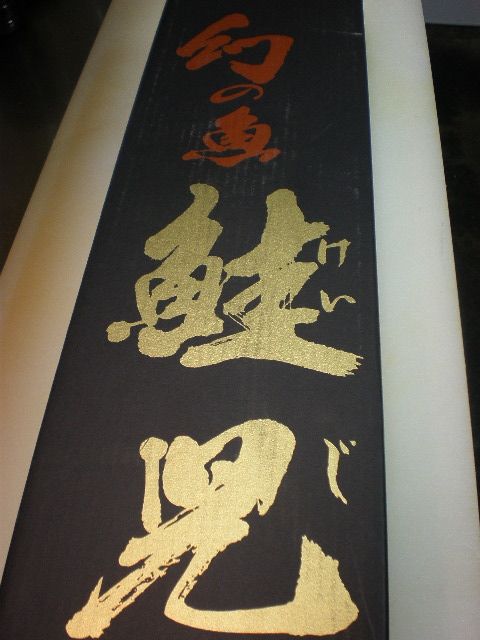 幻の魚
鮭児
けいじ